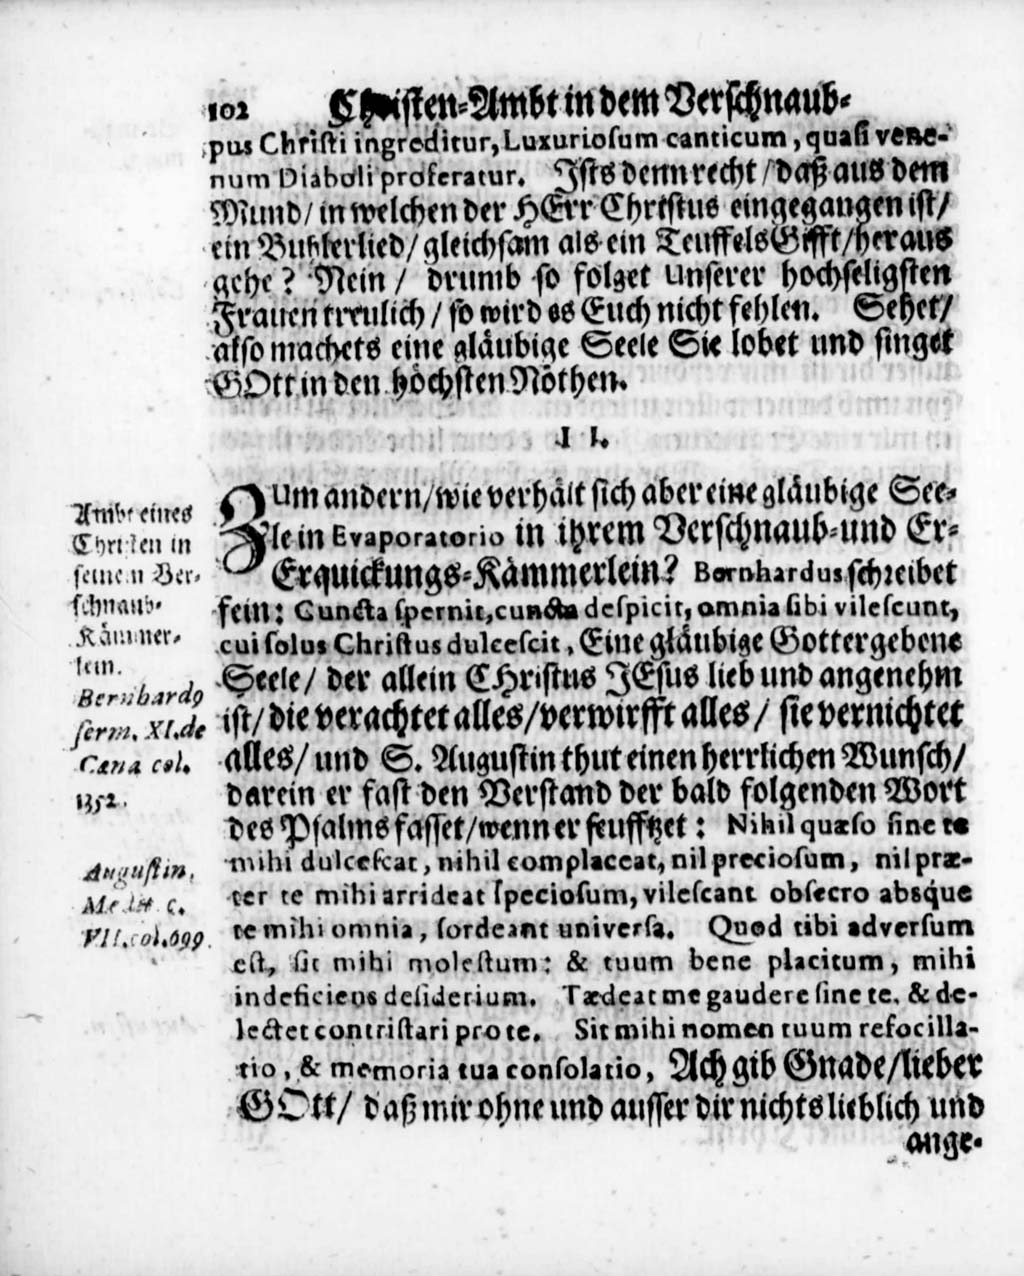 102 Christen-Ambt in dem Verschnaub-
pus Christi ingreditur, Luxuriosum canticum, quasi vene-
num Diaboli proferatur. Ists denn recht / daß aus dem
Mund / in welchen der HErr Christus eingegangen ist /
ein Buhlerlied / gleichsam als ein Teuffels Gifft / heraus
gehe? Nein / drumb so folget Unserer hochseligsten
Frauen treulich / so wird es Euch nicht fehlen. Sehet /
also machets eine gläubige Seele Sie lobet und singet
GOtt in den höchsten Nöthen.
II.
ZUm andern / wie verhält sich aber eine gläubige See-
le in Evaporatorio in ihrem Verschnaub- und Er-
Erquickungs-Kämmerlein? Bernhardus schreibet
fein: Cuncta spernit, cuncta despicit, omnia sibi vilescunt,
cui solus Christus dulcescit, Eine gläubige Gottergebene
Seele / der allein CHristus JEsus lieb und angenehm
ist / die verachtet alles / verwirfft alles / sie vernichtet
alles / und S. Augustin thut einen herrlichen Wunsch /
darein er fast den Verstand der bald folgenden Wort
des Psalms fasset / wenn er seufftzet: Nihil quæso sine te
mihi dulcescat, nihil complaceat, nil preciosum, nil præ-
ter te mihi arrideat speciosum, vilescant obsecro absq́ue
te mihi omnia, sordeant universa. Quod tibi adversum
est, sit mihi molestum: & tuum bene placitum, mihi
indeficiens desiderium. Tædeat me gaudere sine te, & de-
lectet contristari pro te. Sit mihi nomen tuum refocilla-
tio, & memoria tua consolatio, Ach gib Gnade / lieber
GOtt / daß mir ohne und ausser dir nichts lieblich und
ange-
Ambt eines
Christen in
seinem Ver-
schnaub-
Kämmer-
lein.
Bernhardꝰ
serm. XI. de
Cœna col.
1352.
Augustin.
Medit. c.
VII. col. 699.